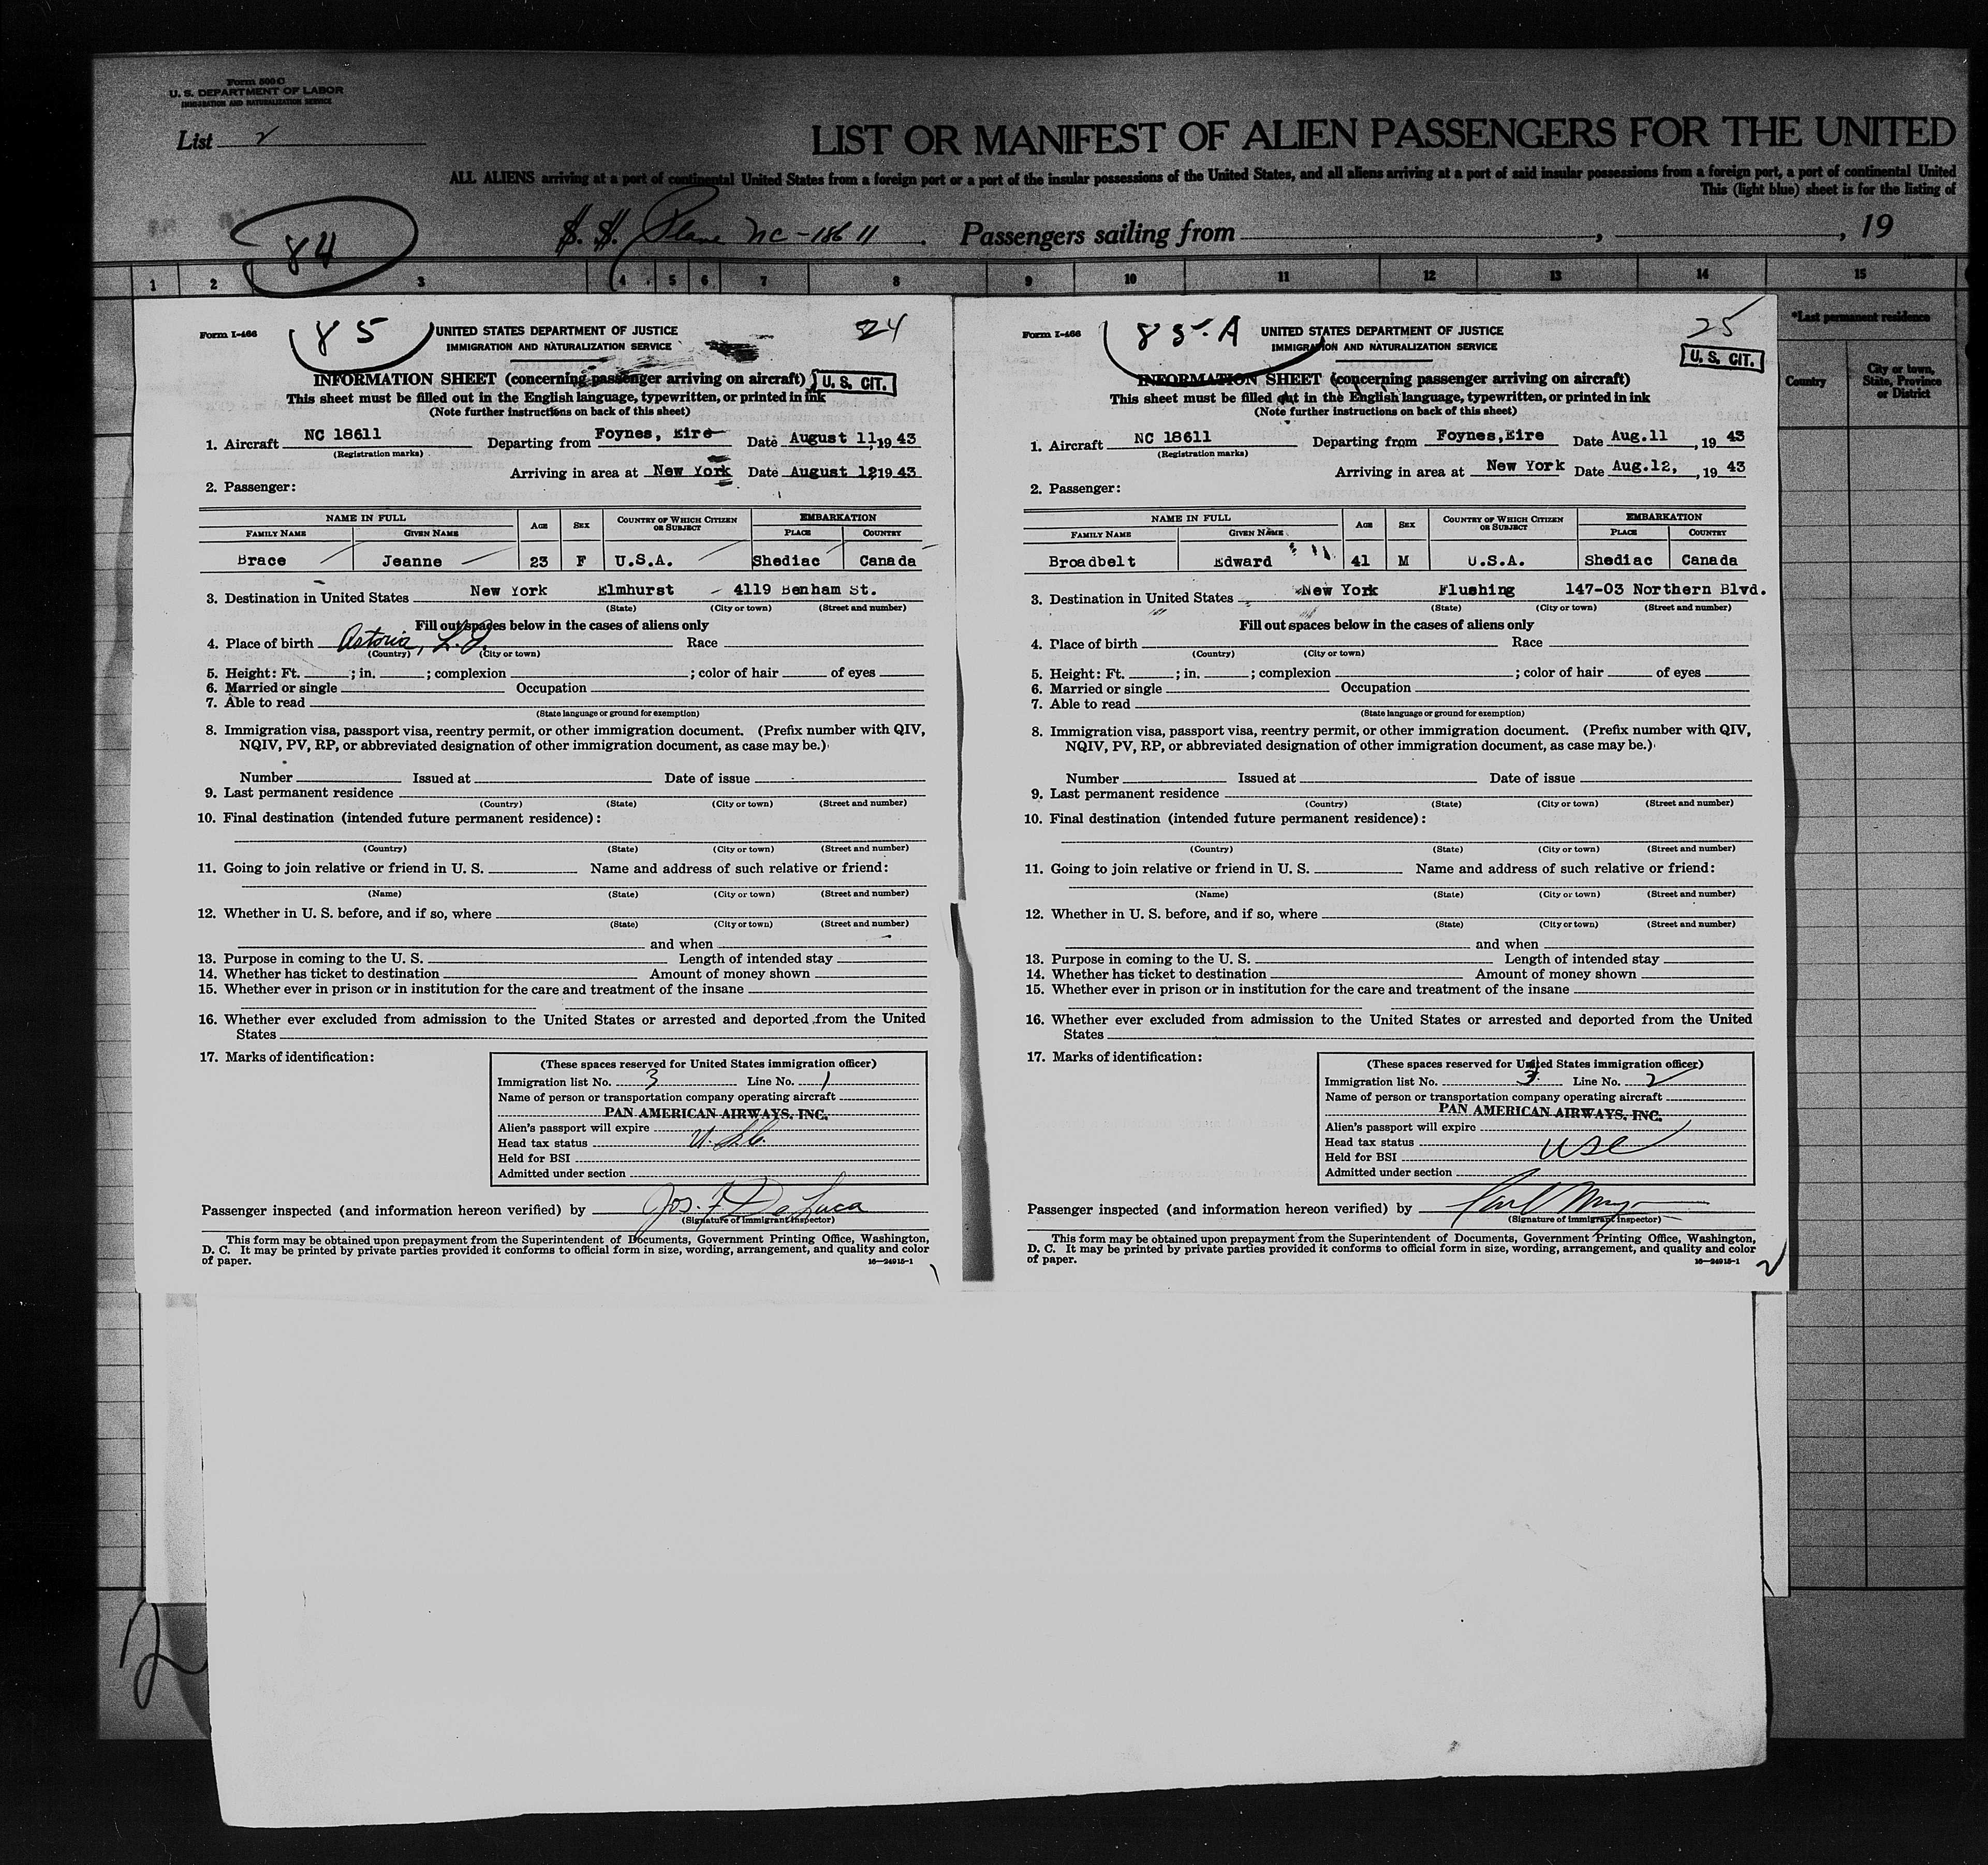 Form 500 C
U. S. DEPARTMENT OF LABOR
IMMIGRATION AND NATURALIZATION SERVICE
List 2
LIST OR MANIFEST OF ALIEN PASSENGERS FOR THE UNITED
ALL ALIENS arriving at a port of continental United States from a foreign port or a port of the insular possessions of the United States, and all aliens arriving at a port of said insular possessions from a foreign port, a port of continental United
This (light blue) sheet is for the listing of
84
S. S. Plane NC-18611 . Passengers sailing from , , 19
1 2 3 4 5 6 7 8 9 10 11 12 13 14 15
*Last permanent residence
Country
City or town, State, Province or District
Form I-466
85
UNITED STATES DEPARTMENT OF JUSTICE
24
IMMIGRATION AND NATURALIZATION SERVICE
INFORMATION SHEET (concerning passenger arriving on aircraft)
U. S. CIT.
This sheet must be filled out in the English language, typewritten, or printed in ink
(Note further instructions on back of this sheet)
1. Aircraft NC 18611 Departing from Foynes, Eire Date August 11, 1943
(Registration marks)
Arriving in area at New York Date August 12, 1943
2. Passenger:
NAME IN FULL AGE SEX COUNTRY OF WHICH CITIZEN OR SUBJECT EMBARKATION
FAMILY NAME GIVEN NAME PLACE COUNTRY
Brace Jeanne 23 F U.S.A. Shediac Canada
3. Destination in United States New York Elmhurst 4119 Benham St.
(State) (City or town) (Street and number)
Fill out spaces below in the cases of aliens only
4. Place of birth Astoria, L.I. Race
(Country) (City or town)
5. Height: Ft. ; in. ; complexion ; color of hair of eyes
6. Married or single Occupation
7. Able to read
(State language or ground for exemption)
8. Immigration visa, passport visa, reentry permit, or other immigration document. (Prefix number with QIV,
NQIV, PV, RP, or abbreviated designation of other immigration document, as case may be.)
Number Issued at Date of issue
9. Last permanent residence
(Country) (State) (City or town) (Street and number)
10. Final destination (intended future permanent residence):
(Country) (State) (City or town) (Street and number)
11. Going to join relative or friend in U. S. Name and address of such relative or friend:
(Name) (State) (City or town) (Street and number)
12. Whether in U. S. before, and if so, where
(State) (City or town) (Street and number)
and when
13. Purpose in coming to the U. S. Length of intended stay
14. Whether has ticket to destination Amount of money shown
15. Whether ever in prison or in institution for the care and treatment of the insane
16. Whether ever excluded from admission to the United States or arrested and deported from the United
States
17. Marks of identification:
(These spaces reserved for United States immigration officer)
Immigration list No. 3 Line No. 1
Name of person or transportation company operating aircraft
PAN AMERICAN AIRWAYS, INC.
Alien's passport will expire
Head tax status U.S.C.
Held for BSI
Admitted under section
Passenger inspected (and information hereon verified) by Jos. F. De Luca
(Signature of immigrant inspector)
This form may be obtained upon prepayment from the Superintendent of Documents, Government Printing Office, Washington,
D. C. It may be printed by private parties provided it conforms to official form in size, wording, arrangement, and quality and color
of paper.
16—24915-1
Form I-466
85-A
UNITED STATES DEPARTMENT OF JUSTICE
25
IMMIGRATION AND NATURALIZATION SERVICE
U. S. CIT.
INFORMATION SHEET (concerning passenger arriving on aircraft)
This sheet must be filled out in the English language, typewritten, or printed in ink
(Note further instructions on back of this sheet)
1. Aircraft NC 18611 Departing from Foynes, Eire Date Aug.11 , 19 43
(Registration marks)
Arriving in area at New York Date Aug.12, , 19 43
2. Passenger:
NAME IN FULL AGE SEX COUNTRY OF WHICH CITIZEN OR SUBJECT EMBARKATION
FAMILY NAME GIVEN NAME PLACE COUNTRY
Broadbelt Edward 41 M U.S.A. Shediac Canada
3. Destination in United States New York Flushing 147-03 Northern Blvd.
(State) (City or town) (Street and number)
Fill out spaces below in the cases of aliens only
4. Place of birth Race
(Country) (City or town)
5. Height: Ft. ; in. ; complexion ; color of hair of eyes
6. Married or single Occupation
7. Able to read
(State language or ground for exemption)
8. Immigration visa, passport visa, reentry permit, or other immigration document. (Prefix number with QIV,
NQIV, PV, RP, or abbreviated designation of other immigration document, as case may be.)
Number Issued at Date of issue
9. Last permanent residence
(Country) (State) (City or town) (Street and number)
10. Final destination (intended future permanent residence):
(Country) (State) (City or town) (Street and number)
11. Going to join relative or friend in U. S. Name and address of such relative or friend:
(Name) (State) (City or town) (Street and number)
12. Whether in U. S. before, and if so, where
(State) (City or town) (Street and number)
and when
13. Purpose in coming to the U. S. Length of intended stay
14. Whether has ticket to destination Amount of money shown
15. Whether ever in prison or in institution for the care and treatment of the insane
16. Whether ever excluded from admission to the United States or arrested and deported from the United
States
17. Marks of identification:
(These spaces reserved for United States immigration officer)
Immigration list No. 3 Line No. 2
Name of person or transportation company operating aircraft
PAN AMERICAN AIRWAYS, INC.
Alien's passport will expire
Head tax status USC
Held for BSI
Admitted under section
Passenger inspected (and information hereon verified) by Carl
(Signature of immigrant inspector)
This form may be obtained upon prepayment from the Superintendent of Documents, Government Printing Office, Washington,
D. C. It may be printed by private parties provided it conforms to official form in size, wording, arrangement, and quality and color
of paper.
16—24915-1
2
2